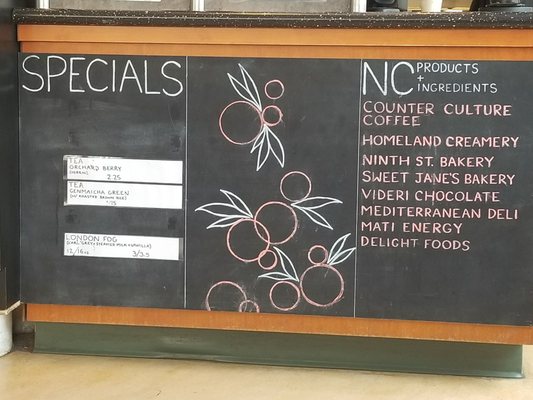 SPECIALS
TEA
ORCHARD BERRY
2.25
TEA
GENMAICHA GREEN
(W/ ROASTED BROWN RICE)
LONDON FOG
12/16oz 3/3.5
NC PRODUCTS
+
INGREDIENTS
COUNTER CULTURE
COFFEE
HOMELAND CREAMERY
NINTH ST. BAKERY
SWEET JANE'S BAKERY
VIDERI CHOCOLATE
MEDITERRANEAN DELI
MATI ENERGY
DELIGHT FOODS